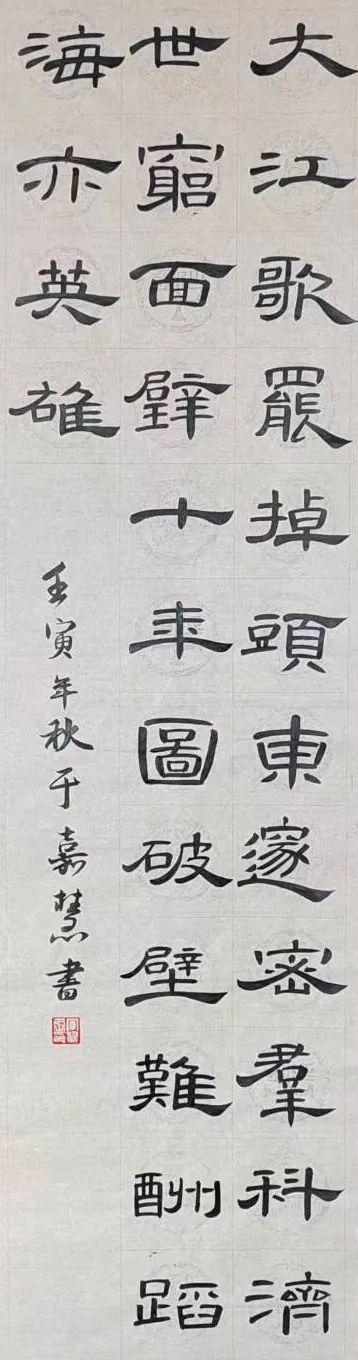 大江歌罷掉頭東邃密羣科濟
世竆面壁十年圖破壁難酬蹈
海亦英雄
壬寅年秋于嘉慧書